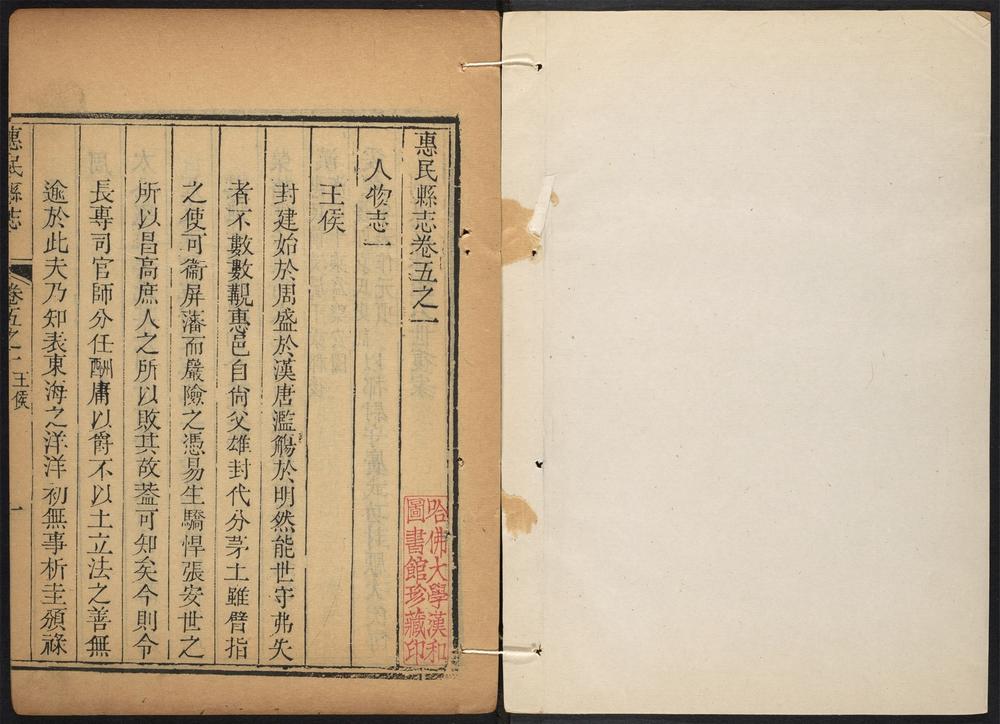 惠民縣志卷五之一
人物志一
王侯
封建始於周盛於漢唐濫觴於明然能世守弗失
者不數數覯惠邑自尙父雄封代分茅土雖臂指
之使可衞屏藩而嚴險之憑易生驕悍張安世之
所以昌高庶人之所以敗其故葢可知矣今則令
長專司官師分任酬庸以爵不以土立法之善無
逾於此夫乃知表東海之洋洋初無事析圭頒祿
惠民縣志
卷五之一 王侯
一
哈佛大學漢和
圖書館珍藏印